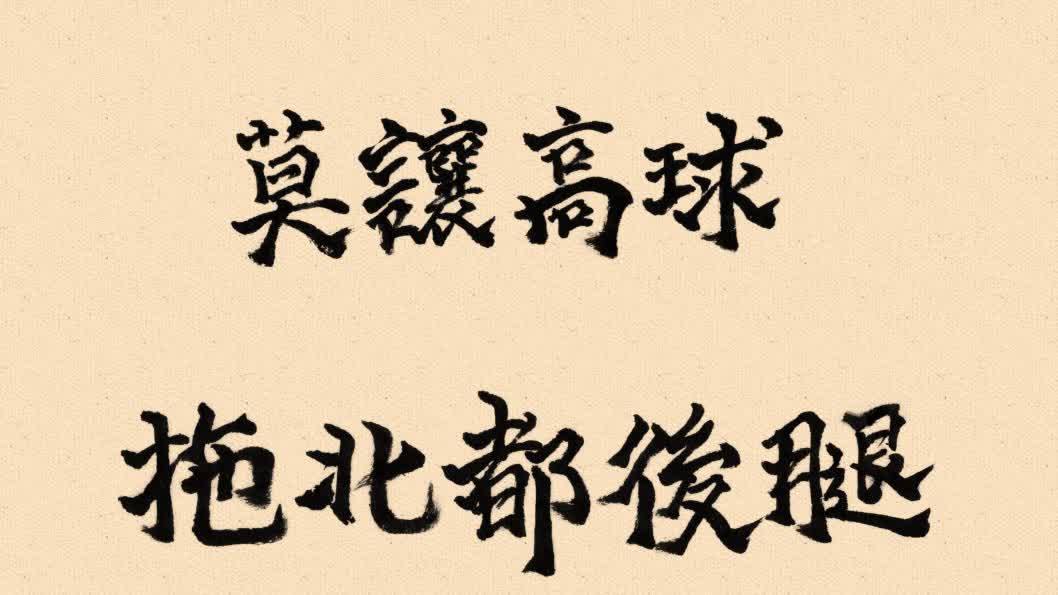 莫讓高球
拖北都後腿